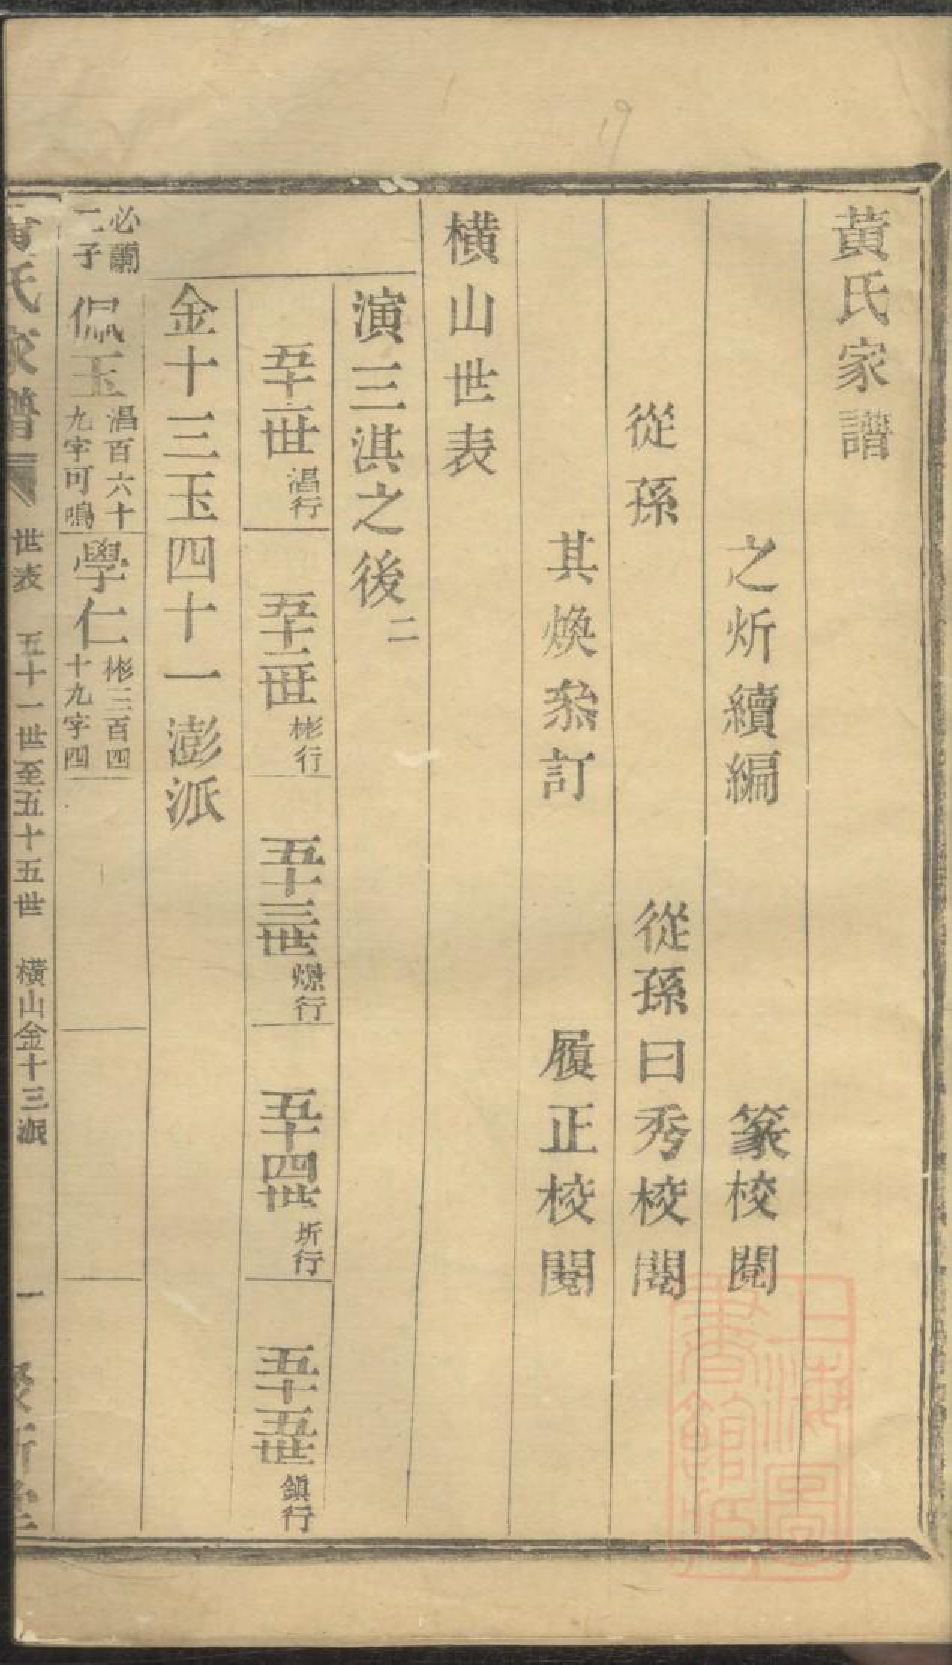 黃氏家譜
之炘續編　篆校閱
從孫　從孫曰秀校閱
其煥叅訂　履正校閱
橫山世表
演三淇之後二
五十一世淐行　五十二世彬行　五十三世行　五十四世圻行　五十五世鎮行
金十三玉四十一澎派
必
二子
侃玉淐百六十
九字可鳴
學仁彬三百四
十九字四
黃氏家譜　世表　五十一世至五十五世　橫山金十三派　一
上海圖
書館藏